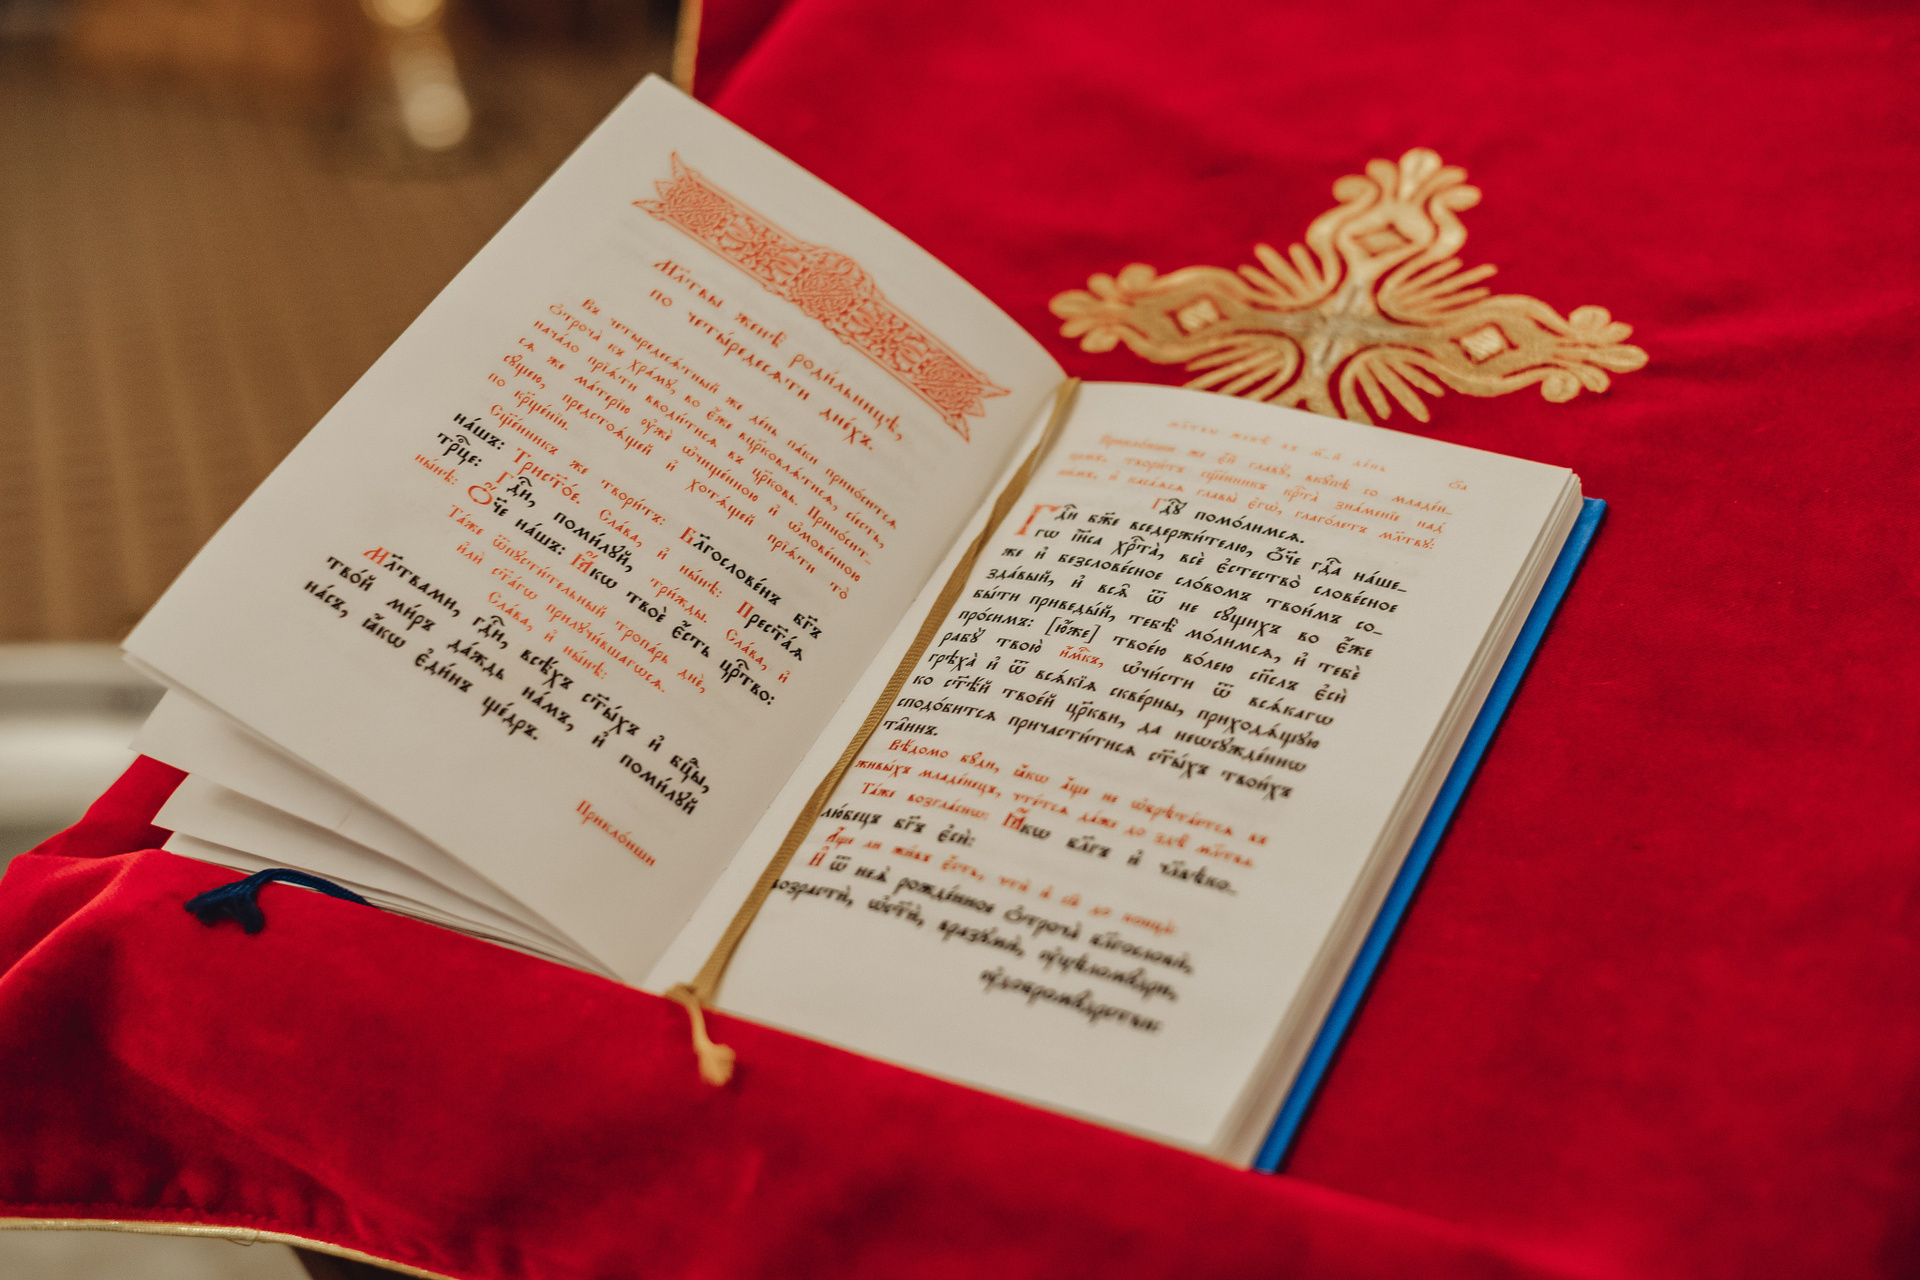 Мл҃твы женѣ̀ роди́льницѣ,
по четы́редесѧти дне́хъ.
Въ четыредесѧ́тный же де́нь па́ки прино́ситсѧ
Ѻ҆троча̀ къ хра́мꙋ, во є҆́же вцр҃ковлѧ́тисѧ, сі́есть,
нача́ло прїѧ́ти вводи́тисѧ въ цр҃ковь. Прино́сит-
сѧ же ма́терїю ᲂу҆жѐ ѡ҆чище́нною и҆ ѡ҆мове́нною
сꙋ́щею, предстоѧ́щей и҆ хотѧ́щей прїѧ́ти то̀
по кр҃ще́нїи.
Сщ҃е́нникъ же твори́тъ: Блгⷭ҇ове́нъ бг҃ъ
на́шъ: Трист҃о́е. Сла́ва, и҆ ны́нѣ: Прест҃а́ѧ
трⷪ҇це: Гдⷭ҇и, поми́лꙋй, три́жды. Сла́ва, и҆
ны́нѣ: Ѻ҆́ч҃е на́шъ: Ꙗ҆́кѡ твоѐ є҆́сть црⷭ҇тво:
Та́же ѿпꙋсти́тельный тропа́рь днѐ,
и҆лѝ ст҃а́гѡ прилꙋчи́вшагѡсѧ.
Сла́ва, и҆ ны́нѣ:
Мл҃твами, гдⷭ҇и, всѣ́хъ ст҃ы́хъ и҆ бцⷣы,
тво́й ми́ръ да́ждь на́мъ, и҆ поми́лꙋй
на́съ, ꙗ҆́кѡ є҆ди́нъ ще́дръ.
Приклѡ́нши
мл҃твы женѣ̀ въ м҃-й де́нь
Приклѡ́нши же є҆́й главꙋ̀, вкꙋ́пѣ со младе́н-
цемъ, твори́тъ сщ҃е́нникъ крⷭ҇та̀ зна́менїе над
ни́мъ, и҆ каса́ѧсѧ главы̀ є҆гѡ̀, глаго́летъ мл҃твꙋ:
Гдⷭ҇ꙋ помо́лимсѧ.
Гдⷭ҇и бж҃е вседержи́телю, Ѻ҆́ч҃е гдⷭ҇а на́ше-
гѡ і҆и҃са хрⷭ҇та̀, всѐ є҆стество̀ слове́сное
же и҆ безслове́сное сло́вомъ твои́мъ со-
зда́вый, и҆ всѧ̑ ѿ не сꙋ́щихъ во є҆́же
бы́ти приведы́й, тебѣ̀ мо́лимсѧ, и҆ тебѐ
про́симъ: [ю҆́же] твое́ю во́лею сп҃слъ є҆сѝ
рабꙋ̀ твою̀ и҆́м҃къ, ѡ҆чи́сти ѿ всѧ́кагѡ
грѣха̀ и҆ ѿ всѧ́кїѧ скве́рны, приходѧ́щꙋю
ко ст҃ѣ́й твое́й цр҃кви, да неѡсꙋжде́ннѡ
сподо́битсѧ причасти́тисѧ ст҃ы́хъ твои́хъ
та̑инъ.
Вѣ́домо бꙋ́ди, ꙗ҆́кѡ а҆́ще не ѡ҆брѣта́етсѧ въ
живы́хъ младе́нецъ, чте́тсѧ да́же до здѣ̀ мл҃тва.
Та́же возгла́сиши: Ꙗ҆́кѡ бл҃гъ и҆ чл҃вѣко-
лю́бецъ бг҃ъ є҆сѝ:
А҆́ще ли жи́въ є҆́сть, чтѝ и҆ сїѐ до конца̀:
И҆ ѿ неѧ̀ рожде́нное Ѻ҆троча̀ блгⷭ҇овѝ,
возрастѝ, ѡ҆ст҃ѝ, вразꙋмѝ, ᲂу҆цѣломꙋ́дри,
ᲂу҆добромꙋ́дрствꙋй: